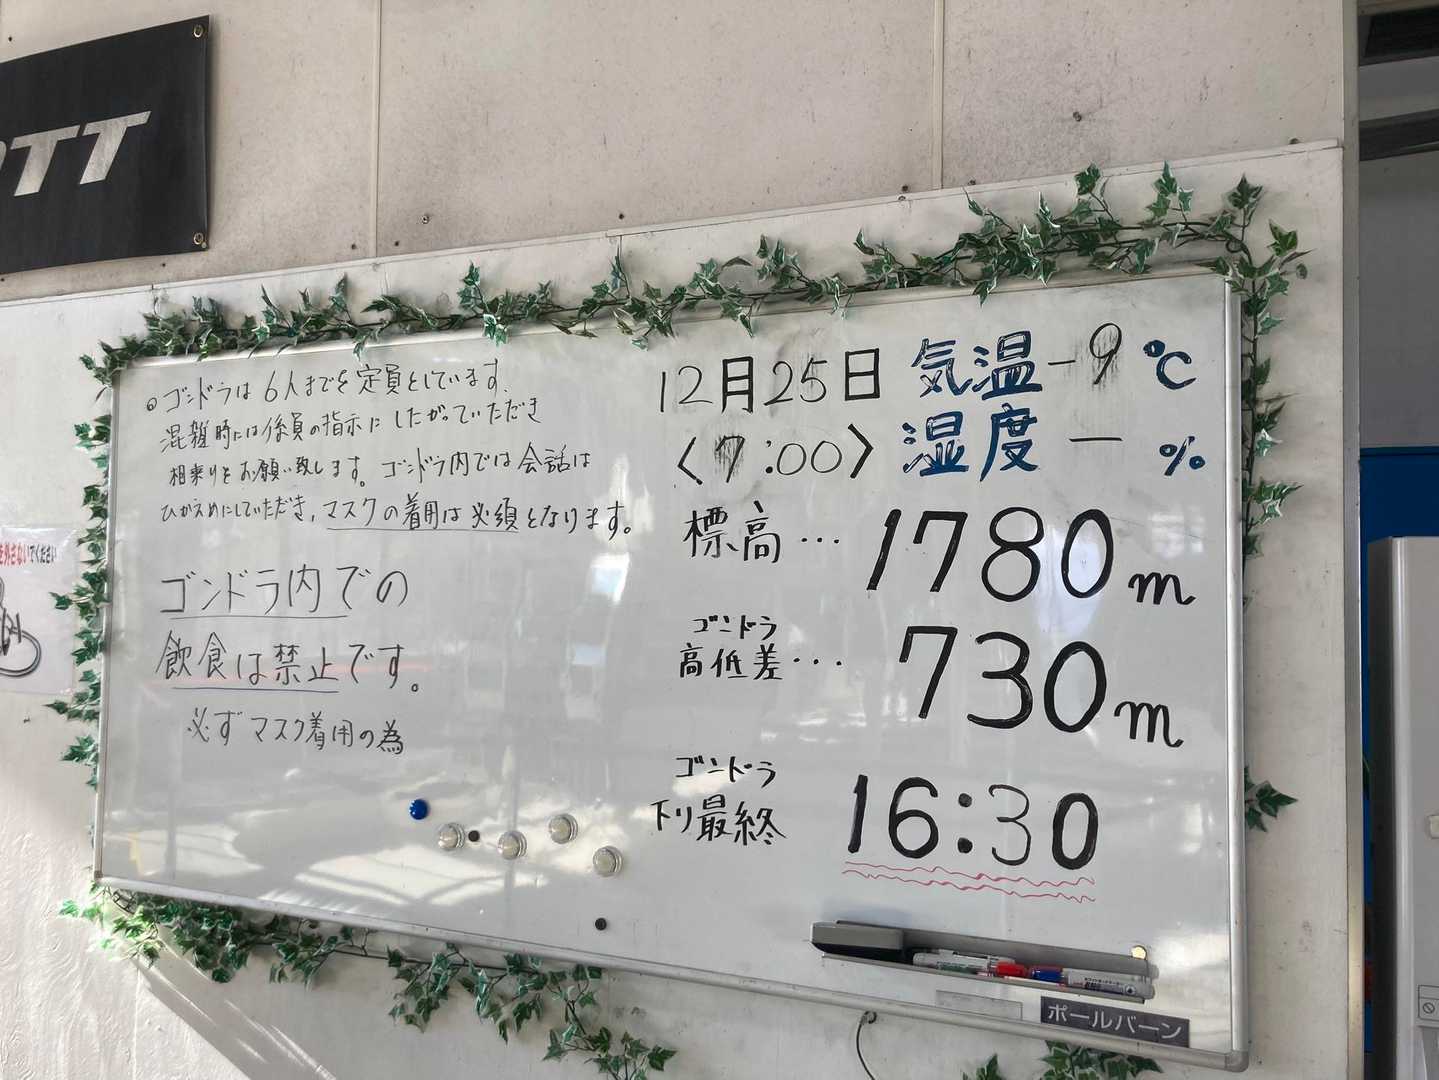 OTT
を外さないでください
◎ゴンドラは6人までを定員としています.
混雑時には係員の指示にしたがっていただき
相乗りをお願い致します。ゴンドラ内では会話は
ひかえめにしていただき,マスクの着用は必須となります。
ゴンドラ内での
飲食は禁止です。
必ずマスク着用の為
12月25日
<7:00>
気温-9℃
湿度 - %
標高… 1780m
ゴンドラ
高低差… 730m
ゴンドラ
下り最終 16:30
ポールバーン